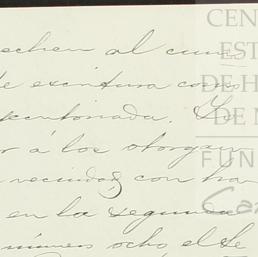 echen al cum
de escritura como
mencionada. Yo
r á los otorgan
vecindad, con han
en la segunda
número ocho, el de
CEN
EST
DE H
DE N
FUN
Ca